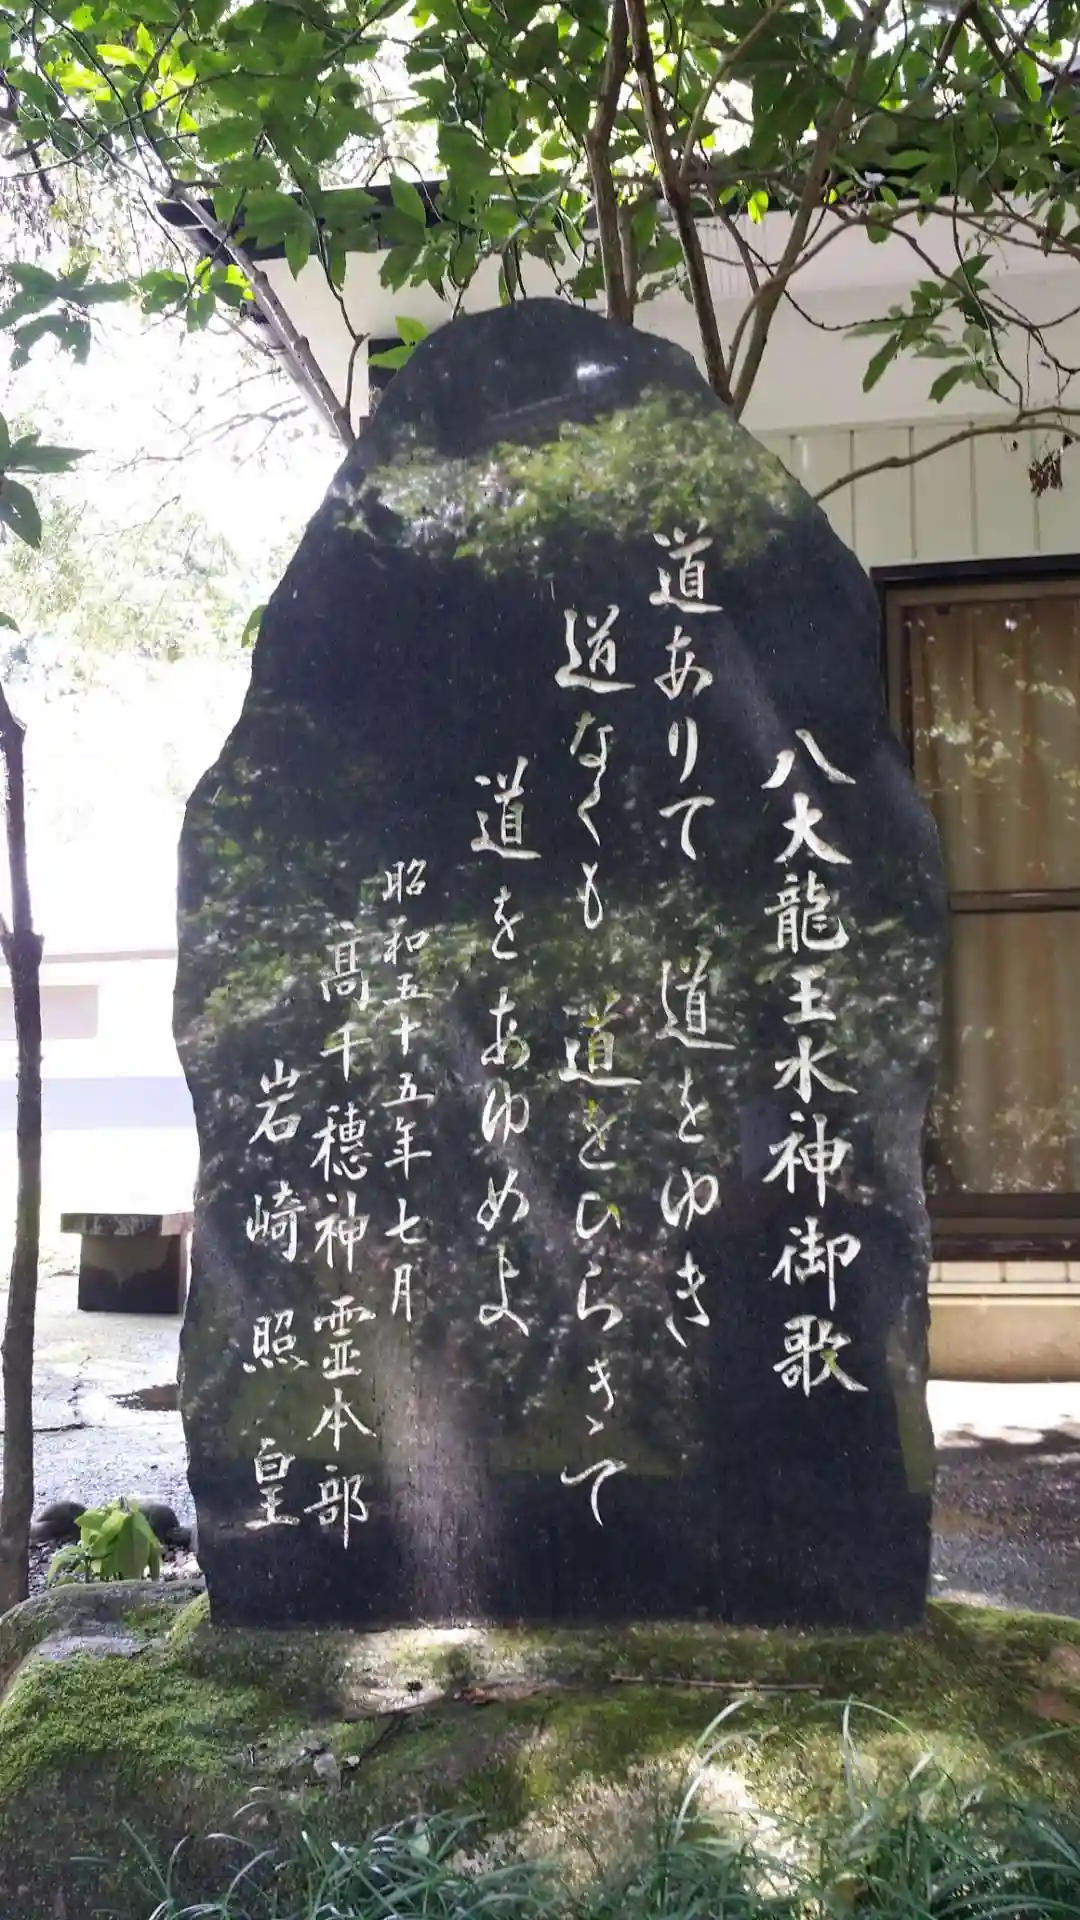 八大龍王水神御歌
道ありて 道をゆき
道なくも 道をひらきて
道をあゆめよ
昭和五十五年七月
髙千穂神霊本部
岩崎照皇